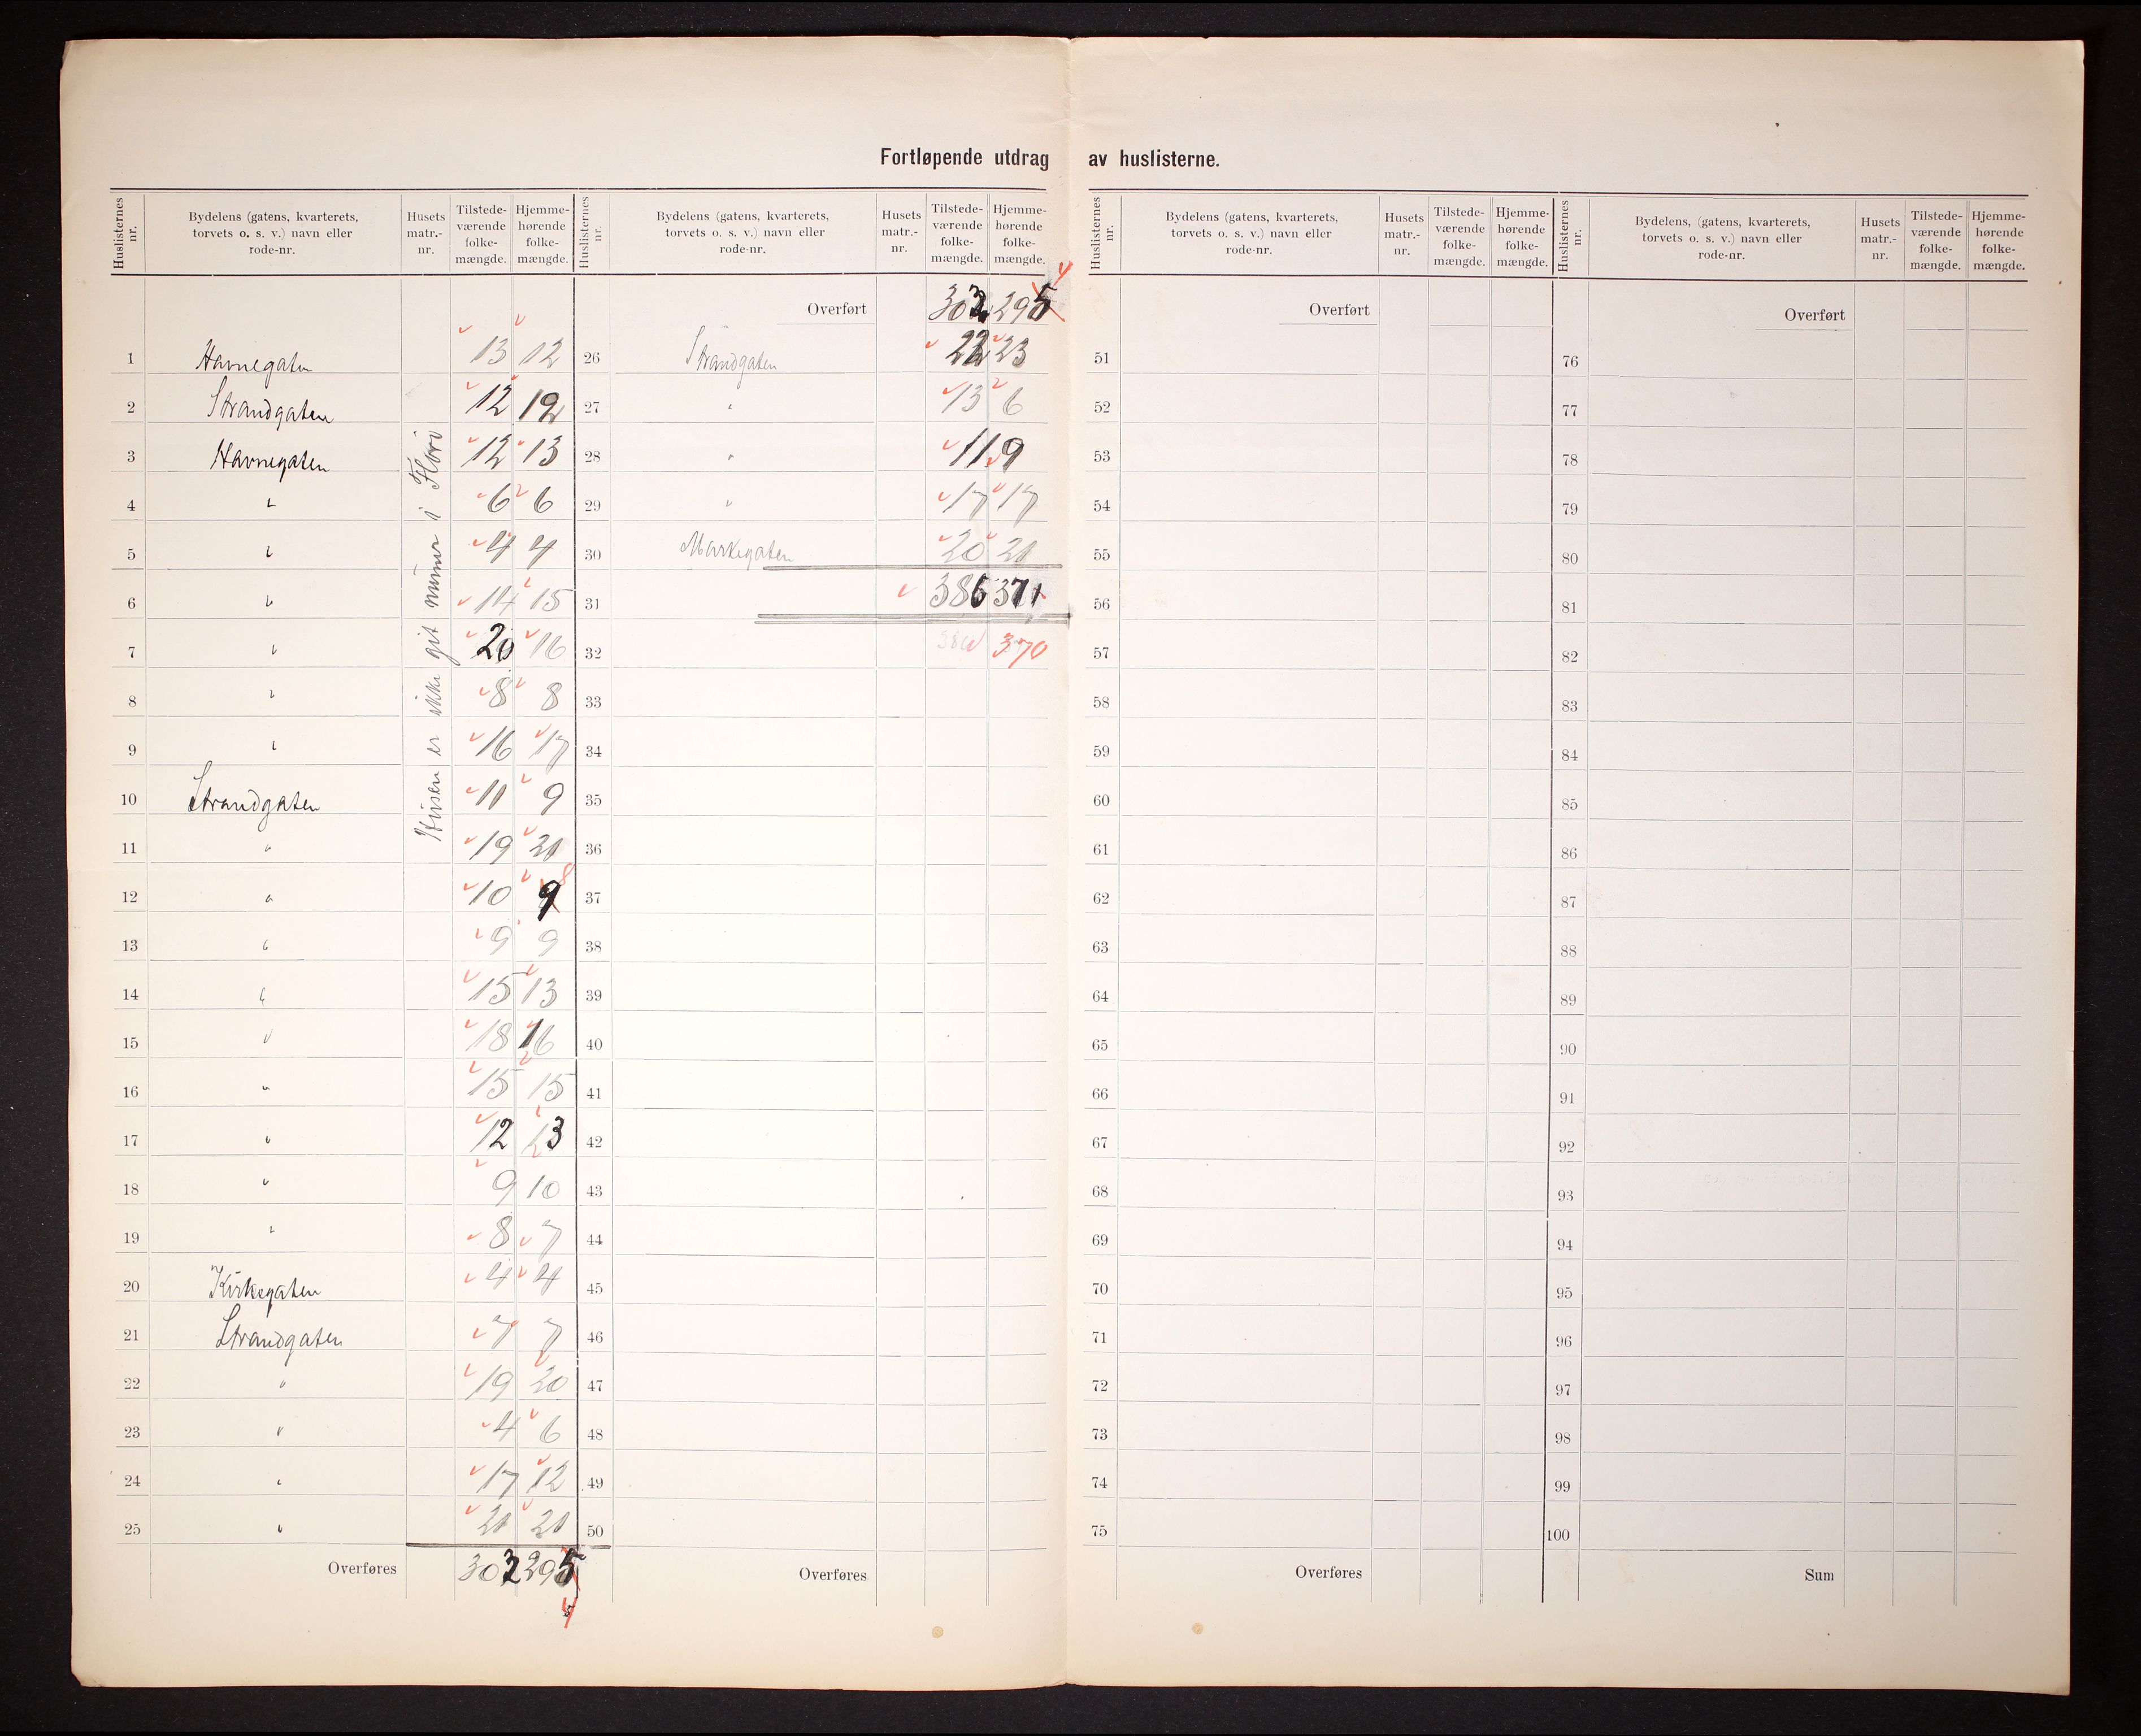 Fortløpende utdrag av huslisterne.
Huslisternes nr. Bydelens (gatens, kvarterets, torvets o. s. v.) navn eller rode-nr. Husets matr.-nr. Tilstede-værende folke-mængde. Hjemme-hørende folke-mængde.
1 Havnegaten 13 12
2 Strandgaten 12 12
3 Havnegaten 12 13
4 " 6 6
5 " 4 4
6 " 14 15
7 " 20 16
8 " 8 8
9 " 16 17
10 Strandgaten 11 9
11 " 19 20
12 " 10 9 8
13 " 9 9
14 " 15 13
15 " 18 16
16 " 15 15
17 " 12 13
18 " 9 10
19 " 8 7
20 Kirkegaten 4 4
21 Strandgaten 7 7
22 " 19 20
23 " 4 6
24 " 17 12
25 "
Overføres 302 295
4
Husen er ikke git numer i Florø
Huslisternes nr. Bydelens (gatens, kvarterets, torvets o. s. v.) navn eller rode-nr. Husets matr.-nr. Tilstede-værende folke-mængde. Hjemme-hørende folke-mængde.
Overført 302 295 4
26 Strandgaten 22 23
27 " 13 6
28 " 11 9
29 " 17 17
30 Markegaten 20
31 386 371
32 386 370
33
34
35
36
37
38
39
40
41
42
43
44
45
46
47
48
49
50
Overføres
Huslisternes nr. Bydelens (gatens, kvarterets, torvets o. s. v.) navn eller rode-nr. Husets matr.-nr. Tilstede-værende folke-mængde. Hjemme-hørende folke-mængde.
Overført
51
52
53
54
55
56
57
58
59
60
61
62
63
64
65
66
67
68
69
70
71
72
73
74
75
Overføres
Huslisternes nr. Bydelens, (gatens, kvarterets, torvets o. s. v.) navn eller rode-nr. Husets matr.-nr. Tilstede-værende folke-mængde. Hjemme-hørende folke-mængde.
Overført
76
77
78
79
80
81
82
83
84
85
86
87
88
89
90
91
92
93
94
95
96
97
98
99
100
Sum